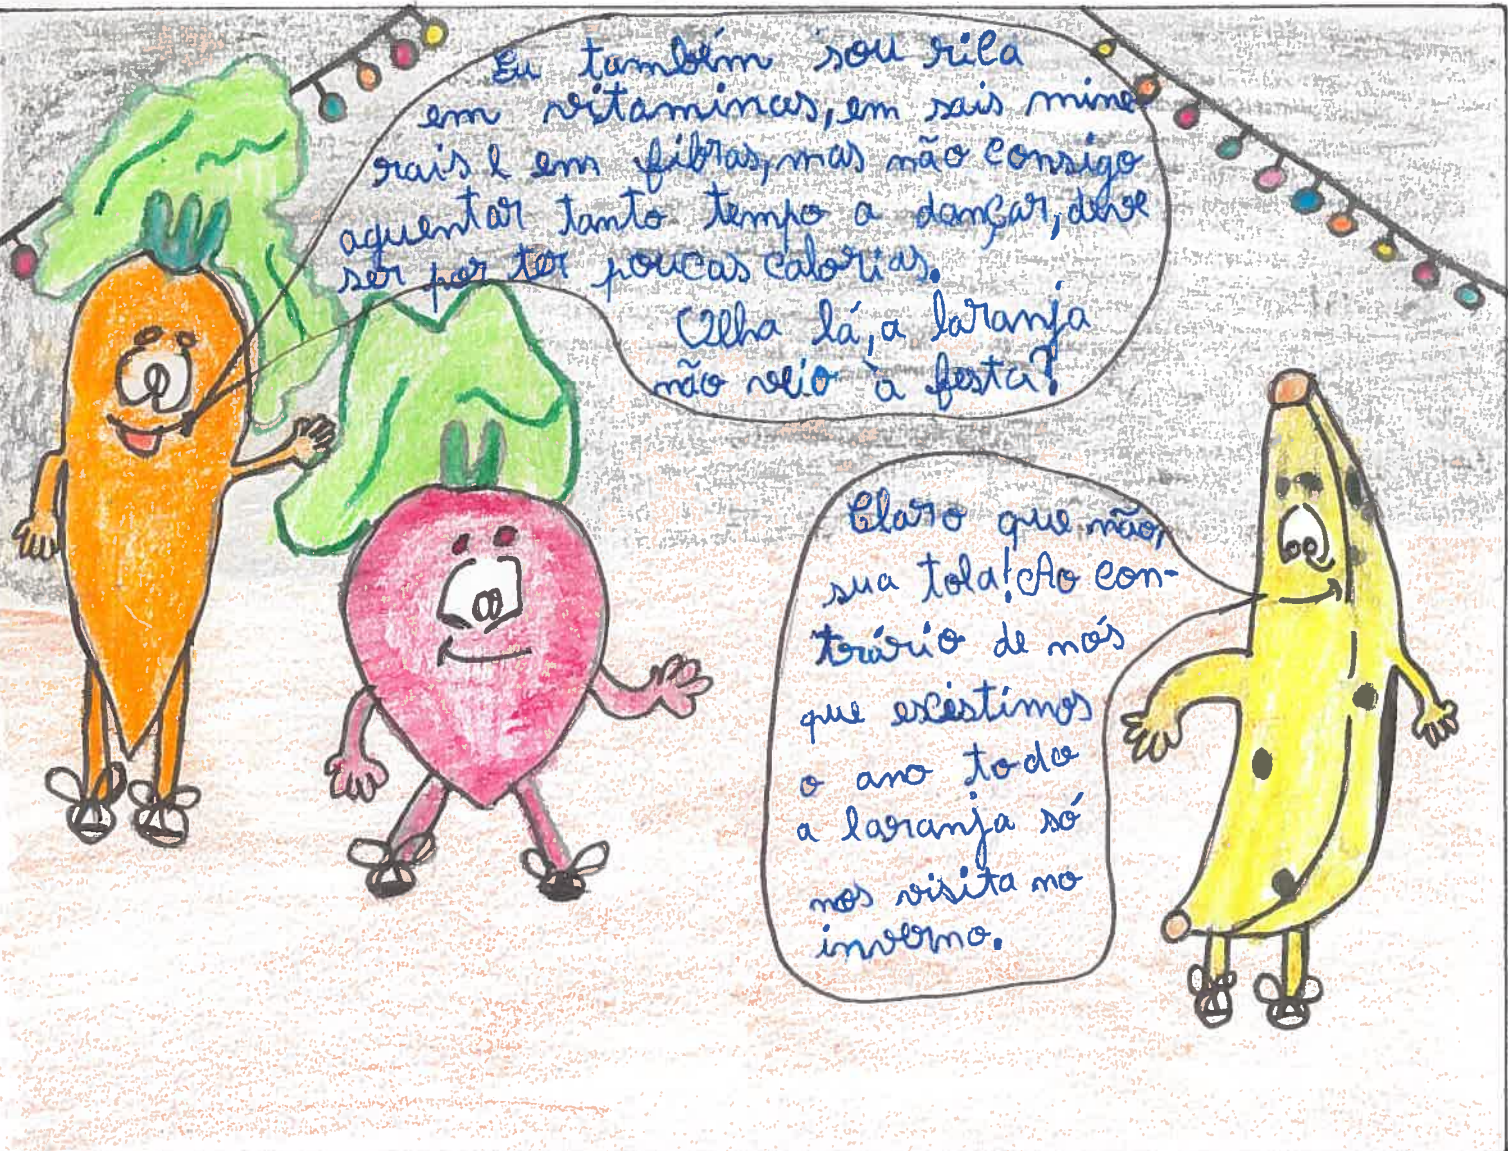 Eu também sou rica
em vitaminas, em sais mine
rais e em fibras, mas não consigo
aguentar tanto tempo a dançar, deve
ser por ter poucas calorias.
Olha lá, a laranja
não veio à festa?
Claro que não,
sua tola! Ao con-
trário de nós
que existimos
o ano todo
a laranja só
nos visita no
inverno.